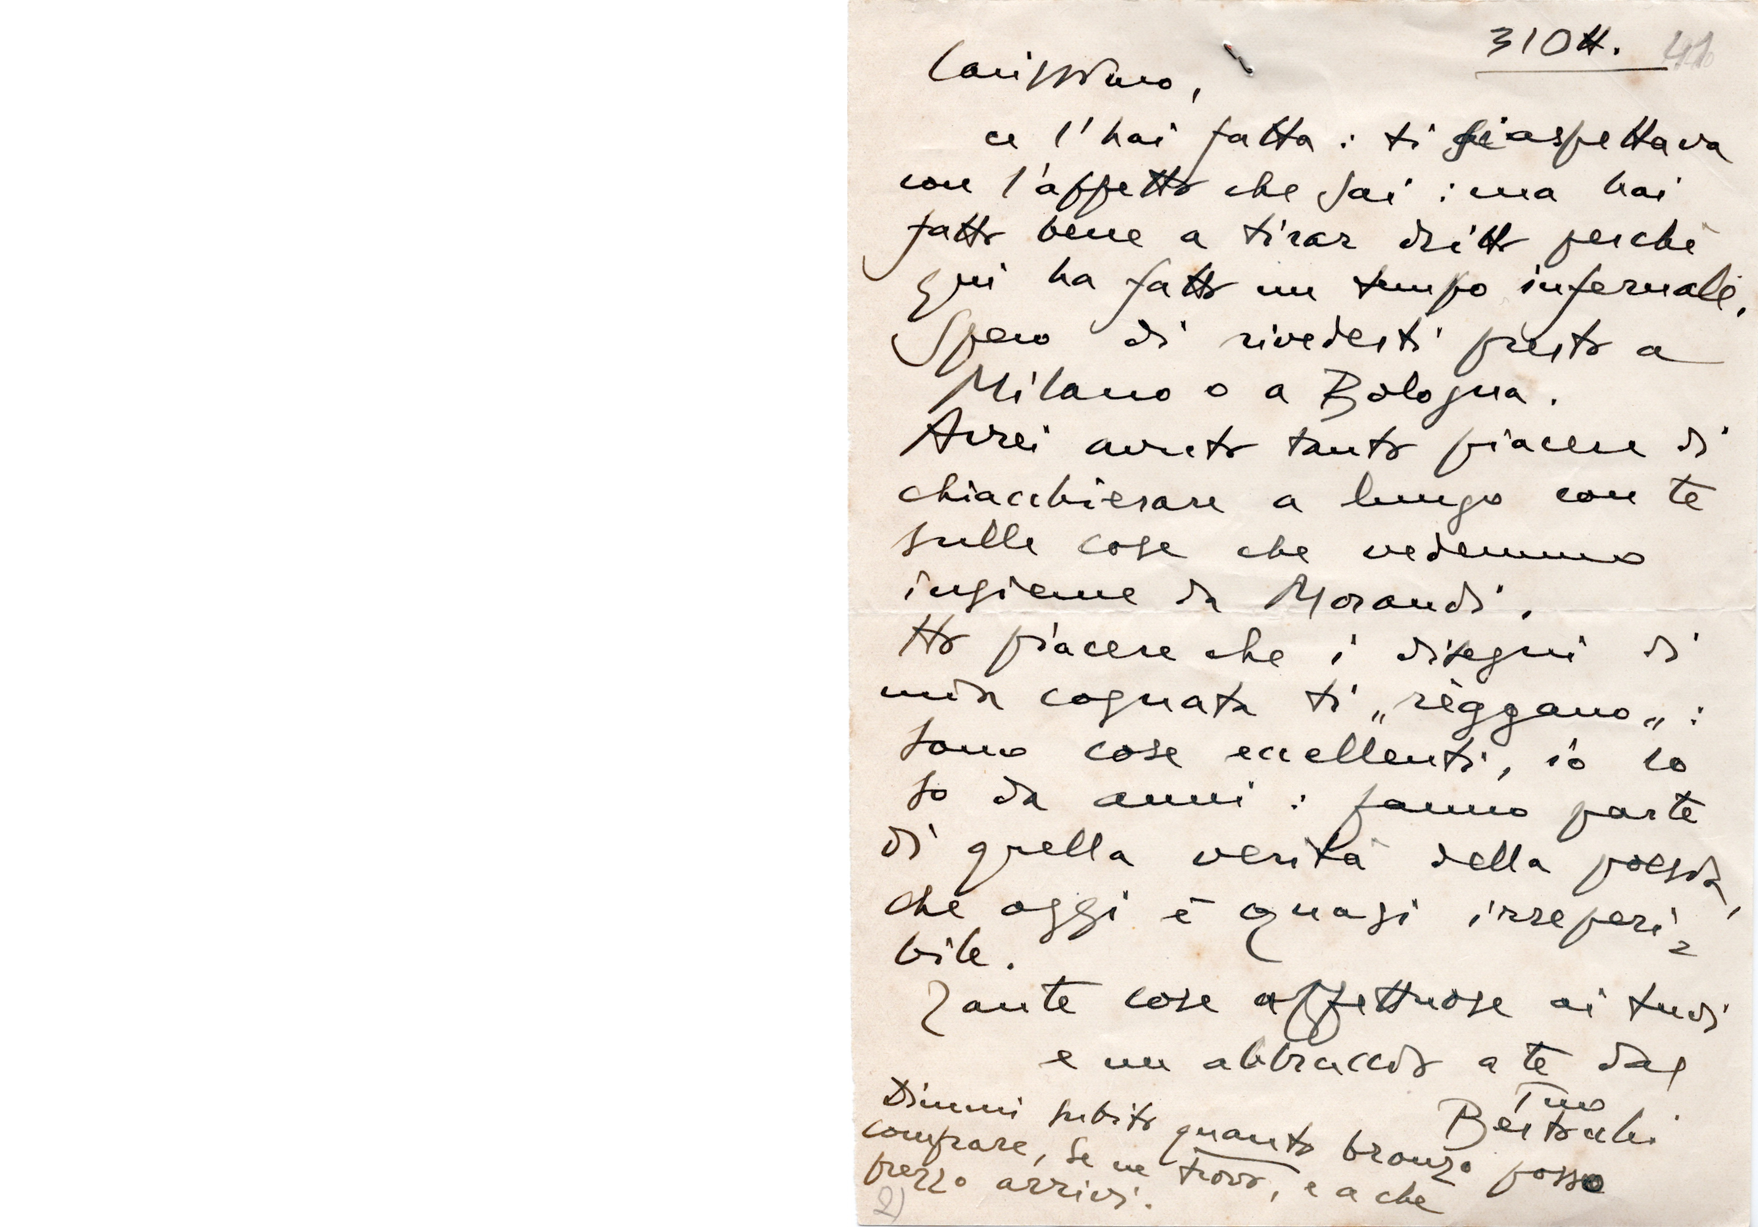 31 Ott. 41
Carissimo,
ce l'hai fatta : ti aspettava
con l'affetto che sai : ma hai
fatto bene a tirar dritto perché
qui ha fatto un tempo infernale.
Spero di rivederti presto a
Milano o a Bologna.
Avrei avuto tanto piacere di
chiacchierare a lungo con te
sulle cose che vedemmo
insieme da Morandi.
Ho piacere che i disegni di
mia cognata ti „règgano„ :
sono cose eccellenti, io lo
so da anni : fanno parte
di quella verità della poesia,
che oggi è quasi irreperi=
bile.
Tante cose affettuose ai tuoi
e un abbraccio a te dal
Tuo
Bertocchi.
Dimmi subito quanto bronzo posso
comprare, se ne trovo, e a che
prezzo arrivi.
2)